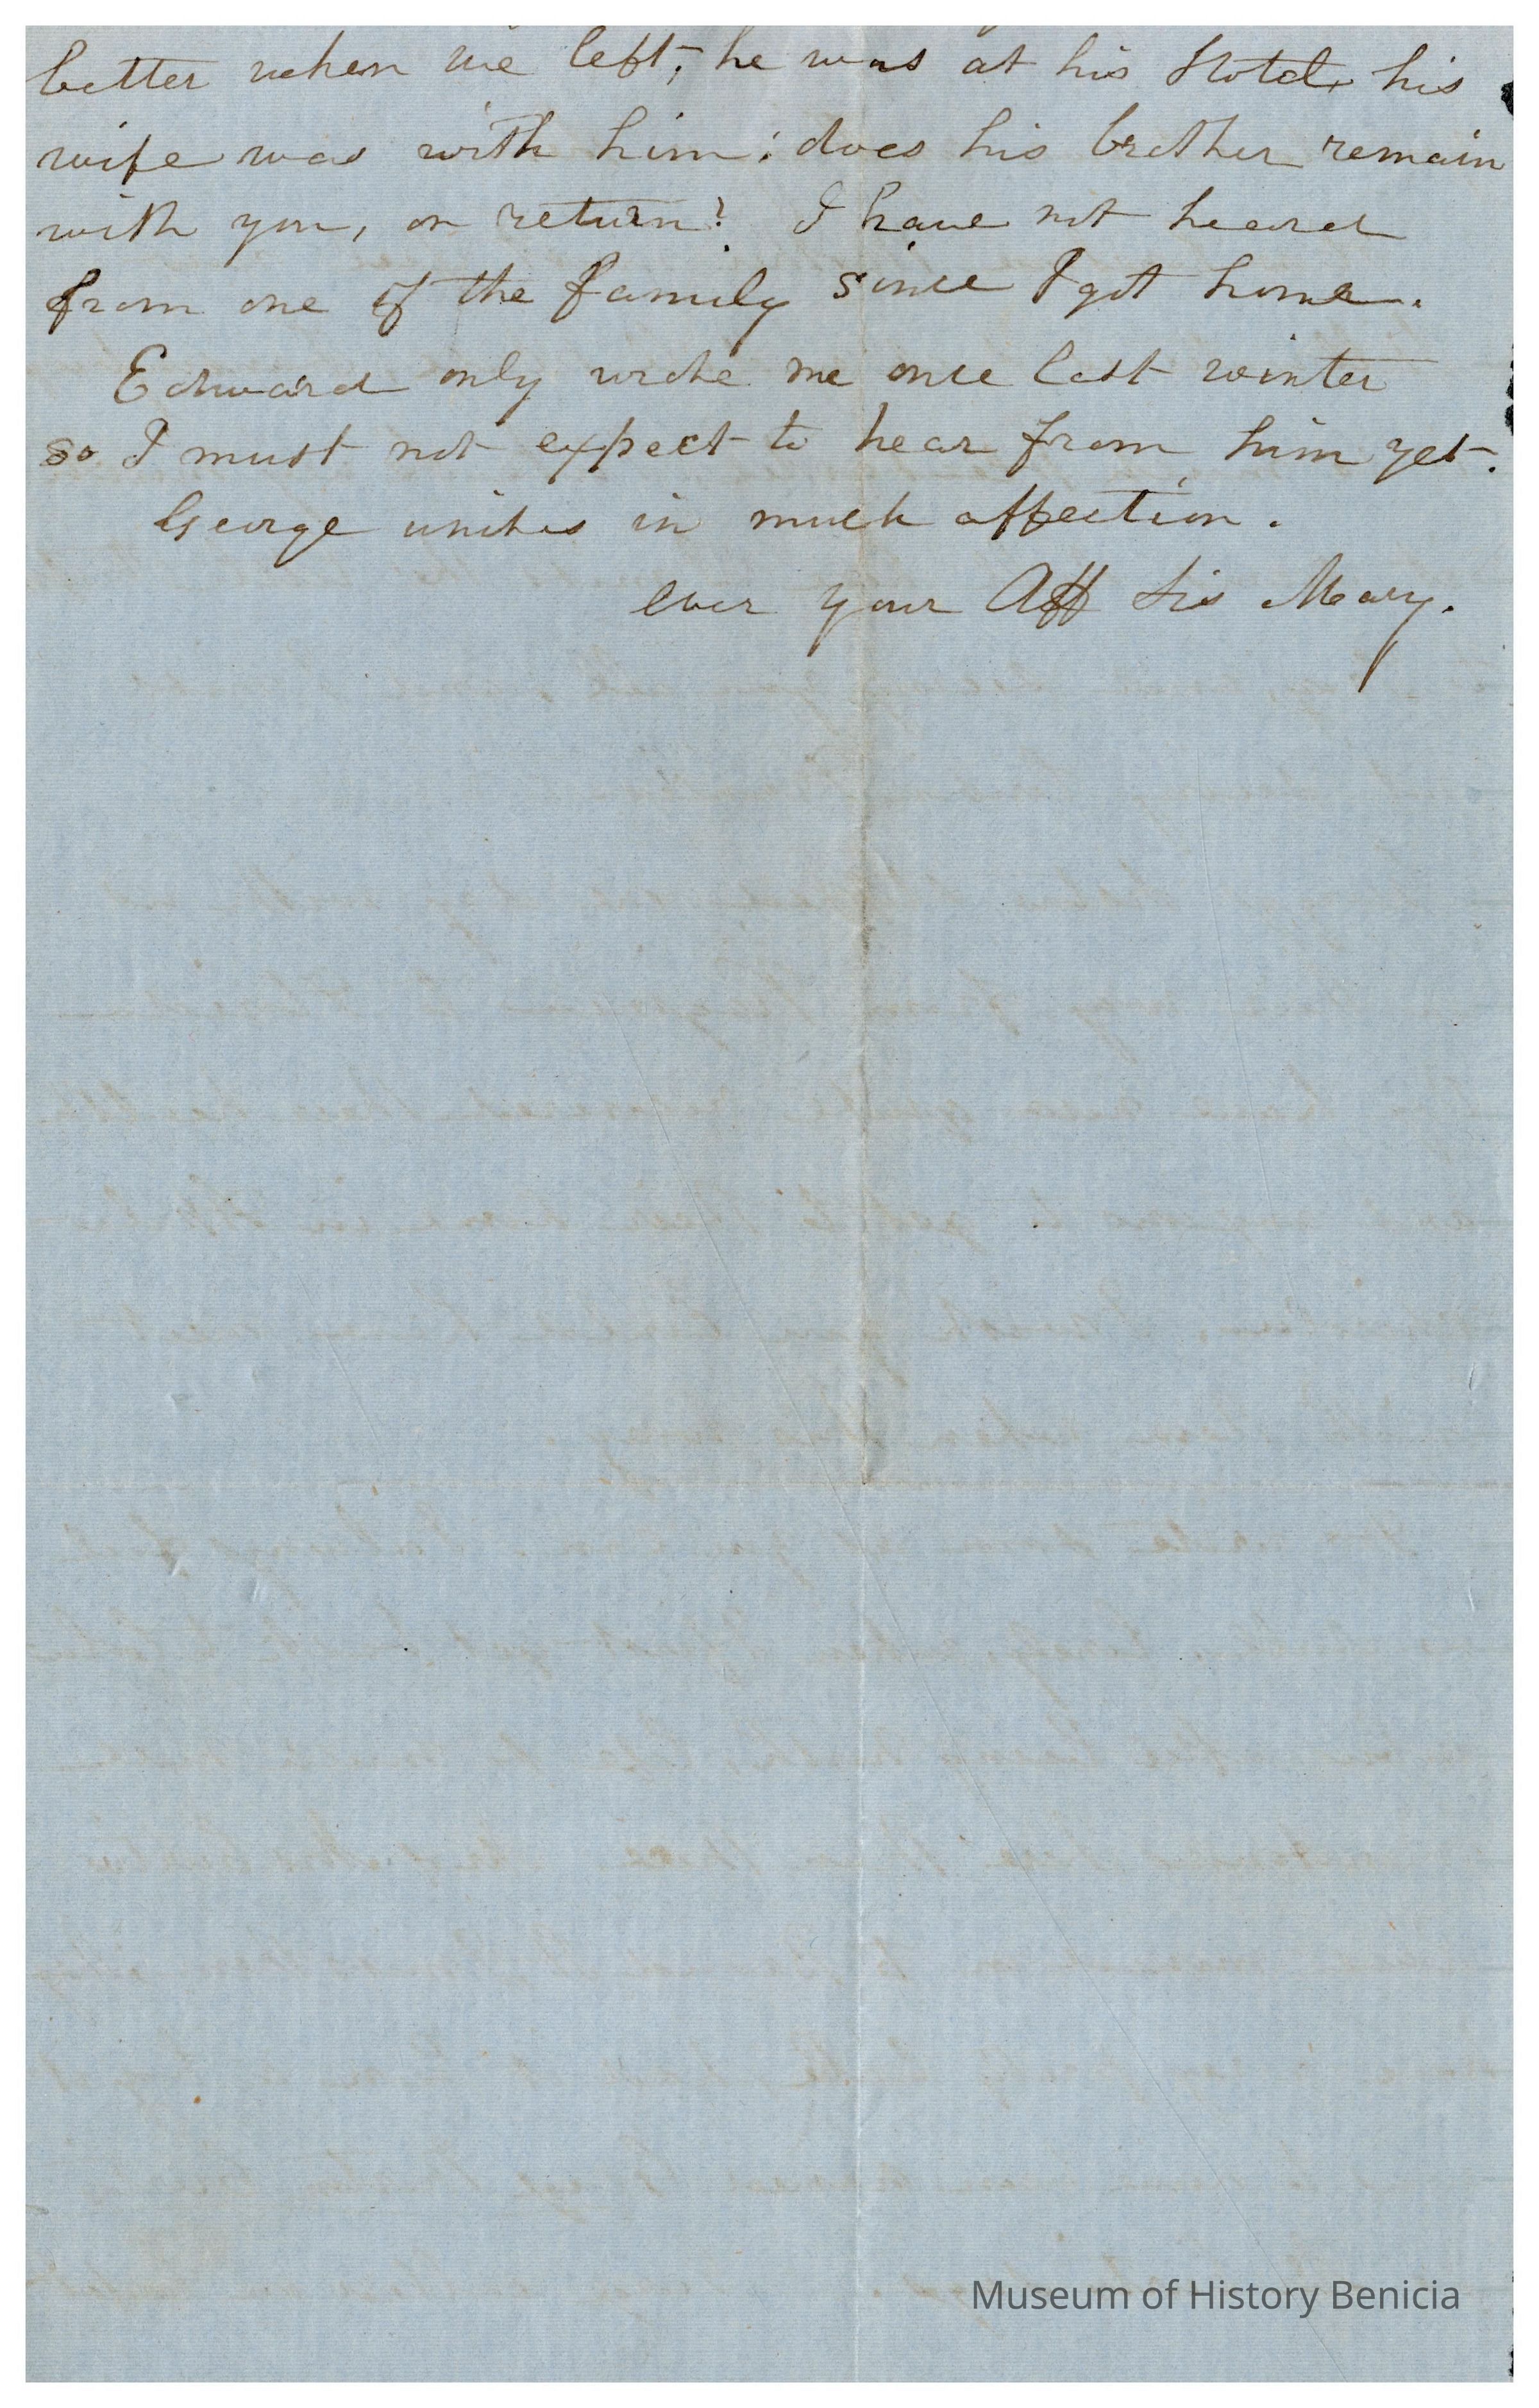 better when we left; he was at his Hotel, his
wife was with him; does his brother remain
with you, or return? I have not heard
from one of the family since I got home.
Edward only wrote me once last winter
so I must not expect to hear from him yet.
George unites in much affection.
ever your Aff Sis Mary.
Museum of History Benicia